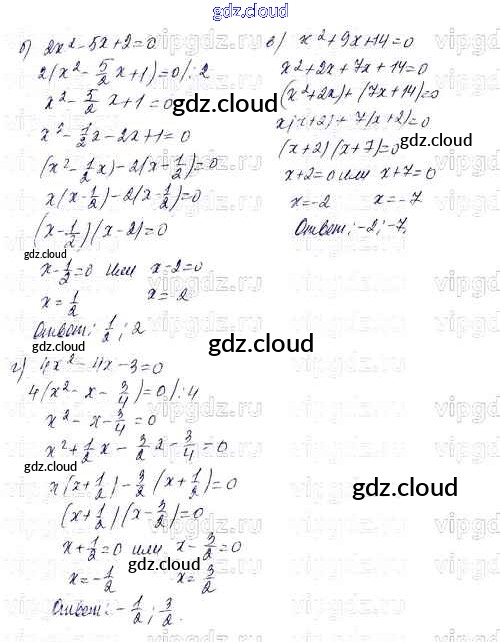 gdz.cloud
б) 2x² - 5x + 2 = 0
2(x² - 5/2 x + 1) = 0 /: 2
x² - 5/2 x + 1 = 0
x² - 1/2 x - 2x + 1 = 0
(x² - 1/2 x) - 2(x - 1/2) = 0
x(x - 1/2) - 2(x - 1/2) = 0
(x - 1/2)(x - 2) = 0
x - 1/2 = 0 или x - 2 = 0
x = 1/2 x = 2
Ответ: 1/2; 2
в) x² + 9x + 14 = 0
x² + 2x + 7x + 14 = 0
(x² + 2x) + (7x + 14) = 0
x(x + 2) + 7(x + 2) = 0
(x + 2)(x + 7) = 0
x + 2 = 0 или x + 7 = 0
x = -2 x = -7
Ответ: -2; -7.
г) 4x² - 4x - 3 = 0
4(x² - x - 3/4) = 0 /: 4
x² - x - 3/4 = 0
x² + 1/2 x - 3/2 x - 3/4 = 0
x(x + 1/2) - 3/2 (x + 1/2) = 0
(x + 1/2)(x - 3/2) = 0
x + 1/2 = 0 или x - 3/2 = 0
x = -1/2 x = 3/2
Ответ: -1/2; 3/2.
gdz.cloud
gdz.cloud
gdz.cloud
gdz.cloud
gdz.cloud
gdz.cloud
vipgdz.ru